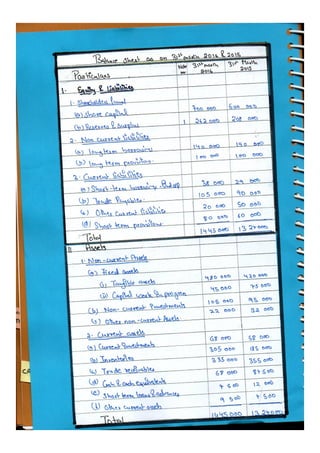 Balance sheet as on 31st march 2016 & 2015
Particulars Note no 31st march 2016 31st March 2015
I. Equity & Liabilities
1. Shareholders fund
(a) Share capital 700 000 600 000
(b) Reserves & Surplus 1 262 000 208 000
2. Non current liabilities
(a) long term borrowing 140 000 140 000
(b) long term provision 100 000 100 000
3. Current liabilities
(a) Short term borrowing 38 000 29 000
(b) Trade Payable 105 000 90 000
(c) Other current liabilities 20 000 50 000
(d) Short term provisions 80 000 60 000
Total 1445 000
II Assets
1. Non-current Assets
(a) Fixed assets
(i) Tangible assets 480 000 420 000
(ii) Capital work in progress 45 000 75 000
(b) Non-current Investments 105 000 95 000
(c) Other non-current Assets 22 000 32 000
2. Current assets
(a) Current Investments 68 000 58 000
(b) Inventories 305 000
(c) Trade receivables 335 000 355 000
(d) Cash & cash equivalents 68 000
(e) Short term loans & advances 12 000
(f) Other current assets 9 500
Total 1445000